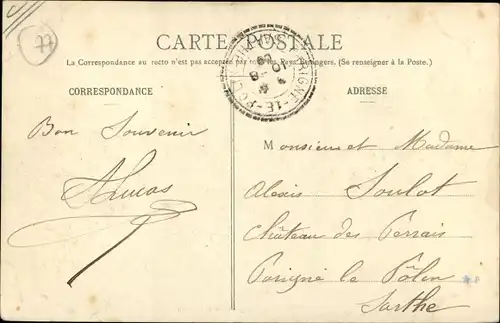 77
CARTE POSTALE
La Correspondance au recto n'est pas acceptée par tous les Pays Étrangers. (Se renseigner à la Poste.)
CORRESPONDANCE
ADRESSE
Bon Souvenir
ALucas
Monsieur et Madame
Alexis Soulot
Château des Perrais
Parigné le Pôlin
Sarthe